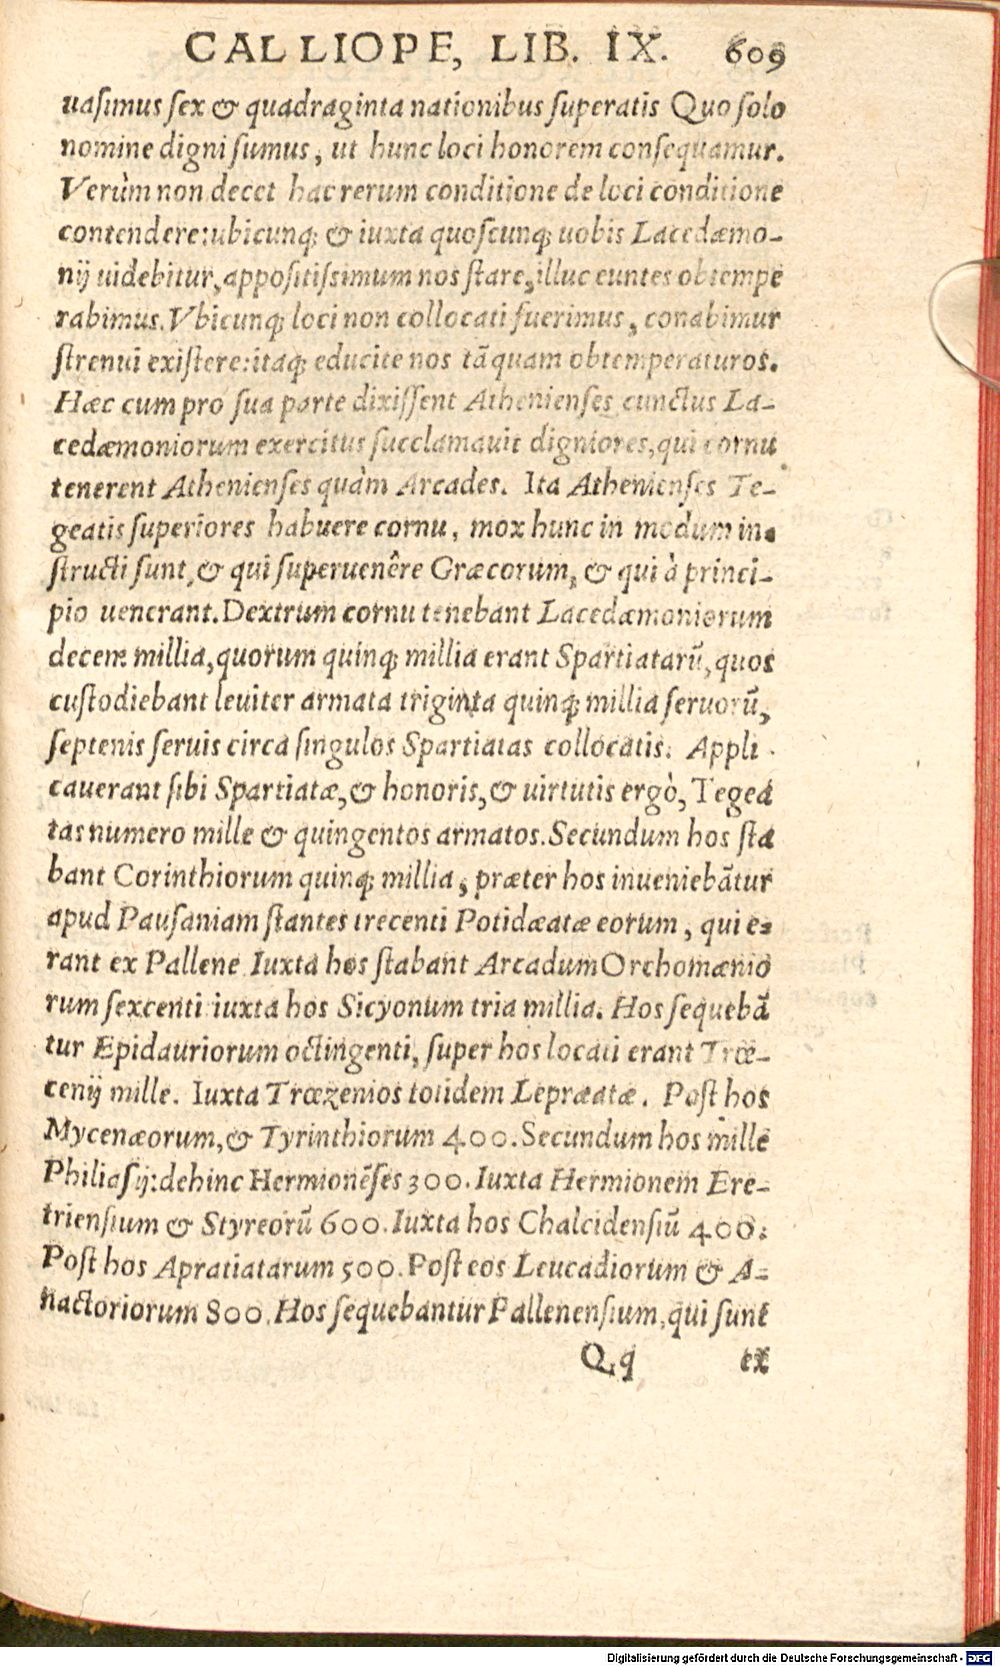 CALLIOPE, LIB. IX. 609
uasimus sex & quadraginta nationibus superatis Quo solo
nomine digni sumus, ut hunc loci honorem consequamur.
Verùm non decet hac rerum conditione de loci conditione
contendere: ubicunq; & iuxta quoscunq; uobis Lacedæmo-
nij uidebitur, appositissimum nos stare, illuc euntes obtempe
rabimus. Vbicunq; loci non collocati fuerimus, conabimur
strenui existere: itaq; educite nos tãquam obtemperaturos.
Hæc cum pro sua parte dixissent Athenienses cunctus La-
cedæmoniorum exercitus succlamauit digniores, qui cornu
tenerent Athenienses quàm Arcades. Ita Athenienses Te-
geatis superiores habuere cornu, mox hunc in modum in-
structi sunt, & qui superuenêre Græcorum, & qui à princi-
pio uenerant. Dextrum cornu tenebant Lacedæmoniorum
decem millia, quorum quinq; millia erant Spartiatarũ, quos
custodiebant leuiter armata triginta quinq; millia seruorũ,
septenis seruis circa singulos Spartiatas collocatis. Appli-
cauerant sibi Spartiatæ, & honoris, & uirtutis ergò, Tegea
tas numero mille & quingentos armatos. Secundum hos sta
bant Corinthiorum quinq; millia, præter hos inueniebãtur
apud Pausaniam stantes trecenti Potidæatæ eorum, qui e-
rant ex Pallene Iuxta hos stabant Arcadum Orchomænio
rum sexcenti iuxta hos Sicyonum tria millia. Hos sequebã
tur Epidauriorum octingenti, super hos locati erant Trœ-
cenij mille. Iuxta Trœzenios totidem Lepræatæ. Post hos
Mycenæorum, & Tyrinthiorum 400. Secundum hos mille
Philiasij: dehinc Hermionẽses 300. Iuxta Hermionem Ere-
triensium & Styreorũ 600. Iuxta hos Chalcidensiũ 400.
Post hos Apratiatarum 500. Post eos Leucadiorum & A-
nactoriorum 800. Hos sequebantur Pallenensium, qui sunt
Qq ex
Digitalisierung gefördert durch die Deutsche Forschungsgemeinschaft - DFG